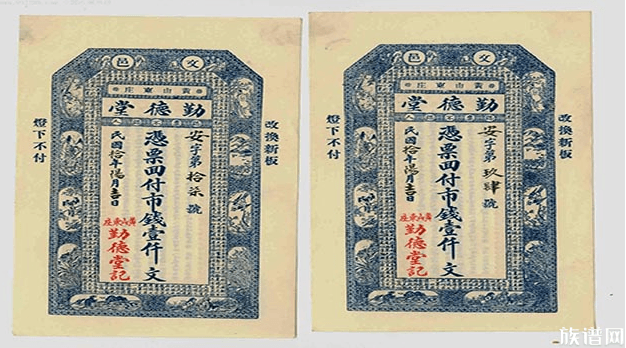 文邑
黄山東庄
勤德堂
改換新板
安字第拾柒號
憑票囬付市錢壹仟文
民國拾年陽月吉日
黄山東庄
勤德堂記
燈下不付
文邑
黄山東庄
勤德堂
改換新板
安字第玖肆號
憑票囬付市錢壹仟文
民國拾年陽月吉日
黄山東庄
勤德堂記
燈下不付
族谱网